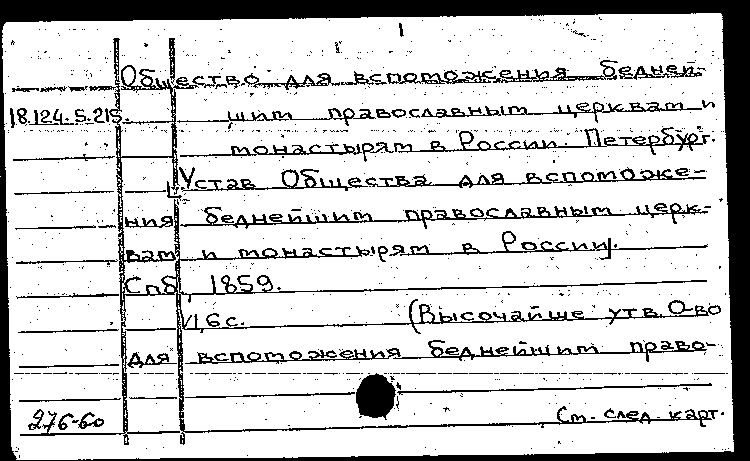 Общество для вспоможения бедней-
18.124.5.215. шим православным церквам и
монастырям в России. Петербург.
Устав Общества для вспоможе-
ния беднейшим православным церк-
вам и монастырям в России].
Спб, 1859.
VI, 6 с. (Высочайше утв. О-во
для вспоможения беднейшим право-
276-60 См. след. карт.